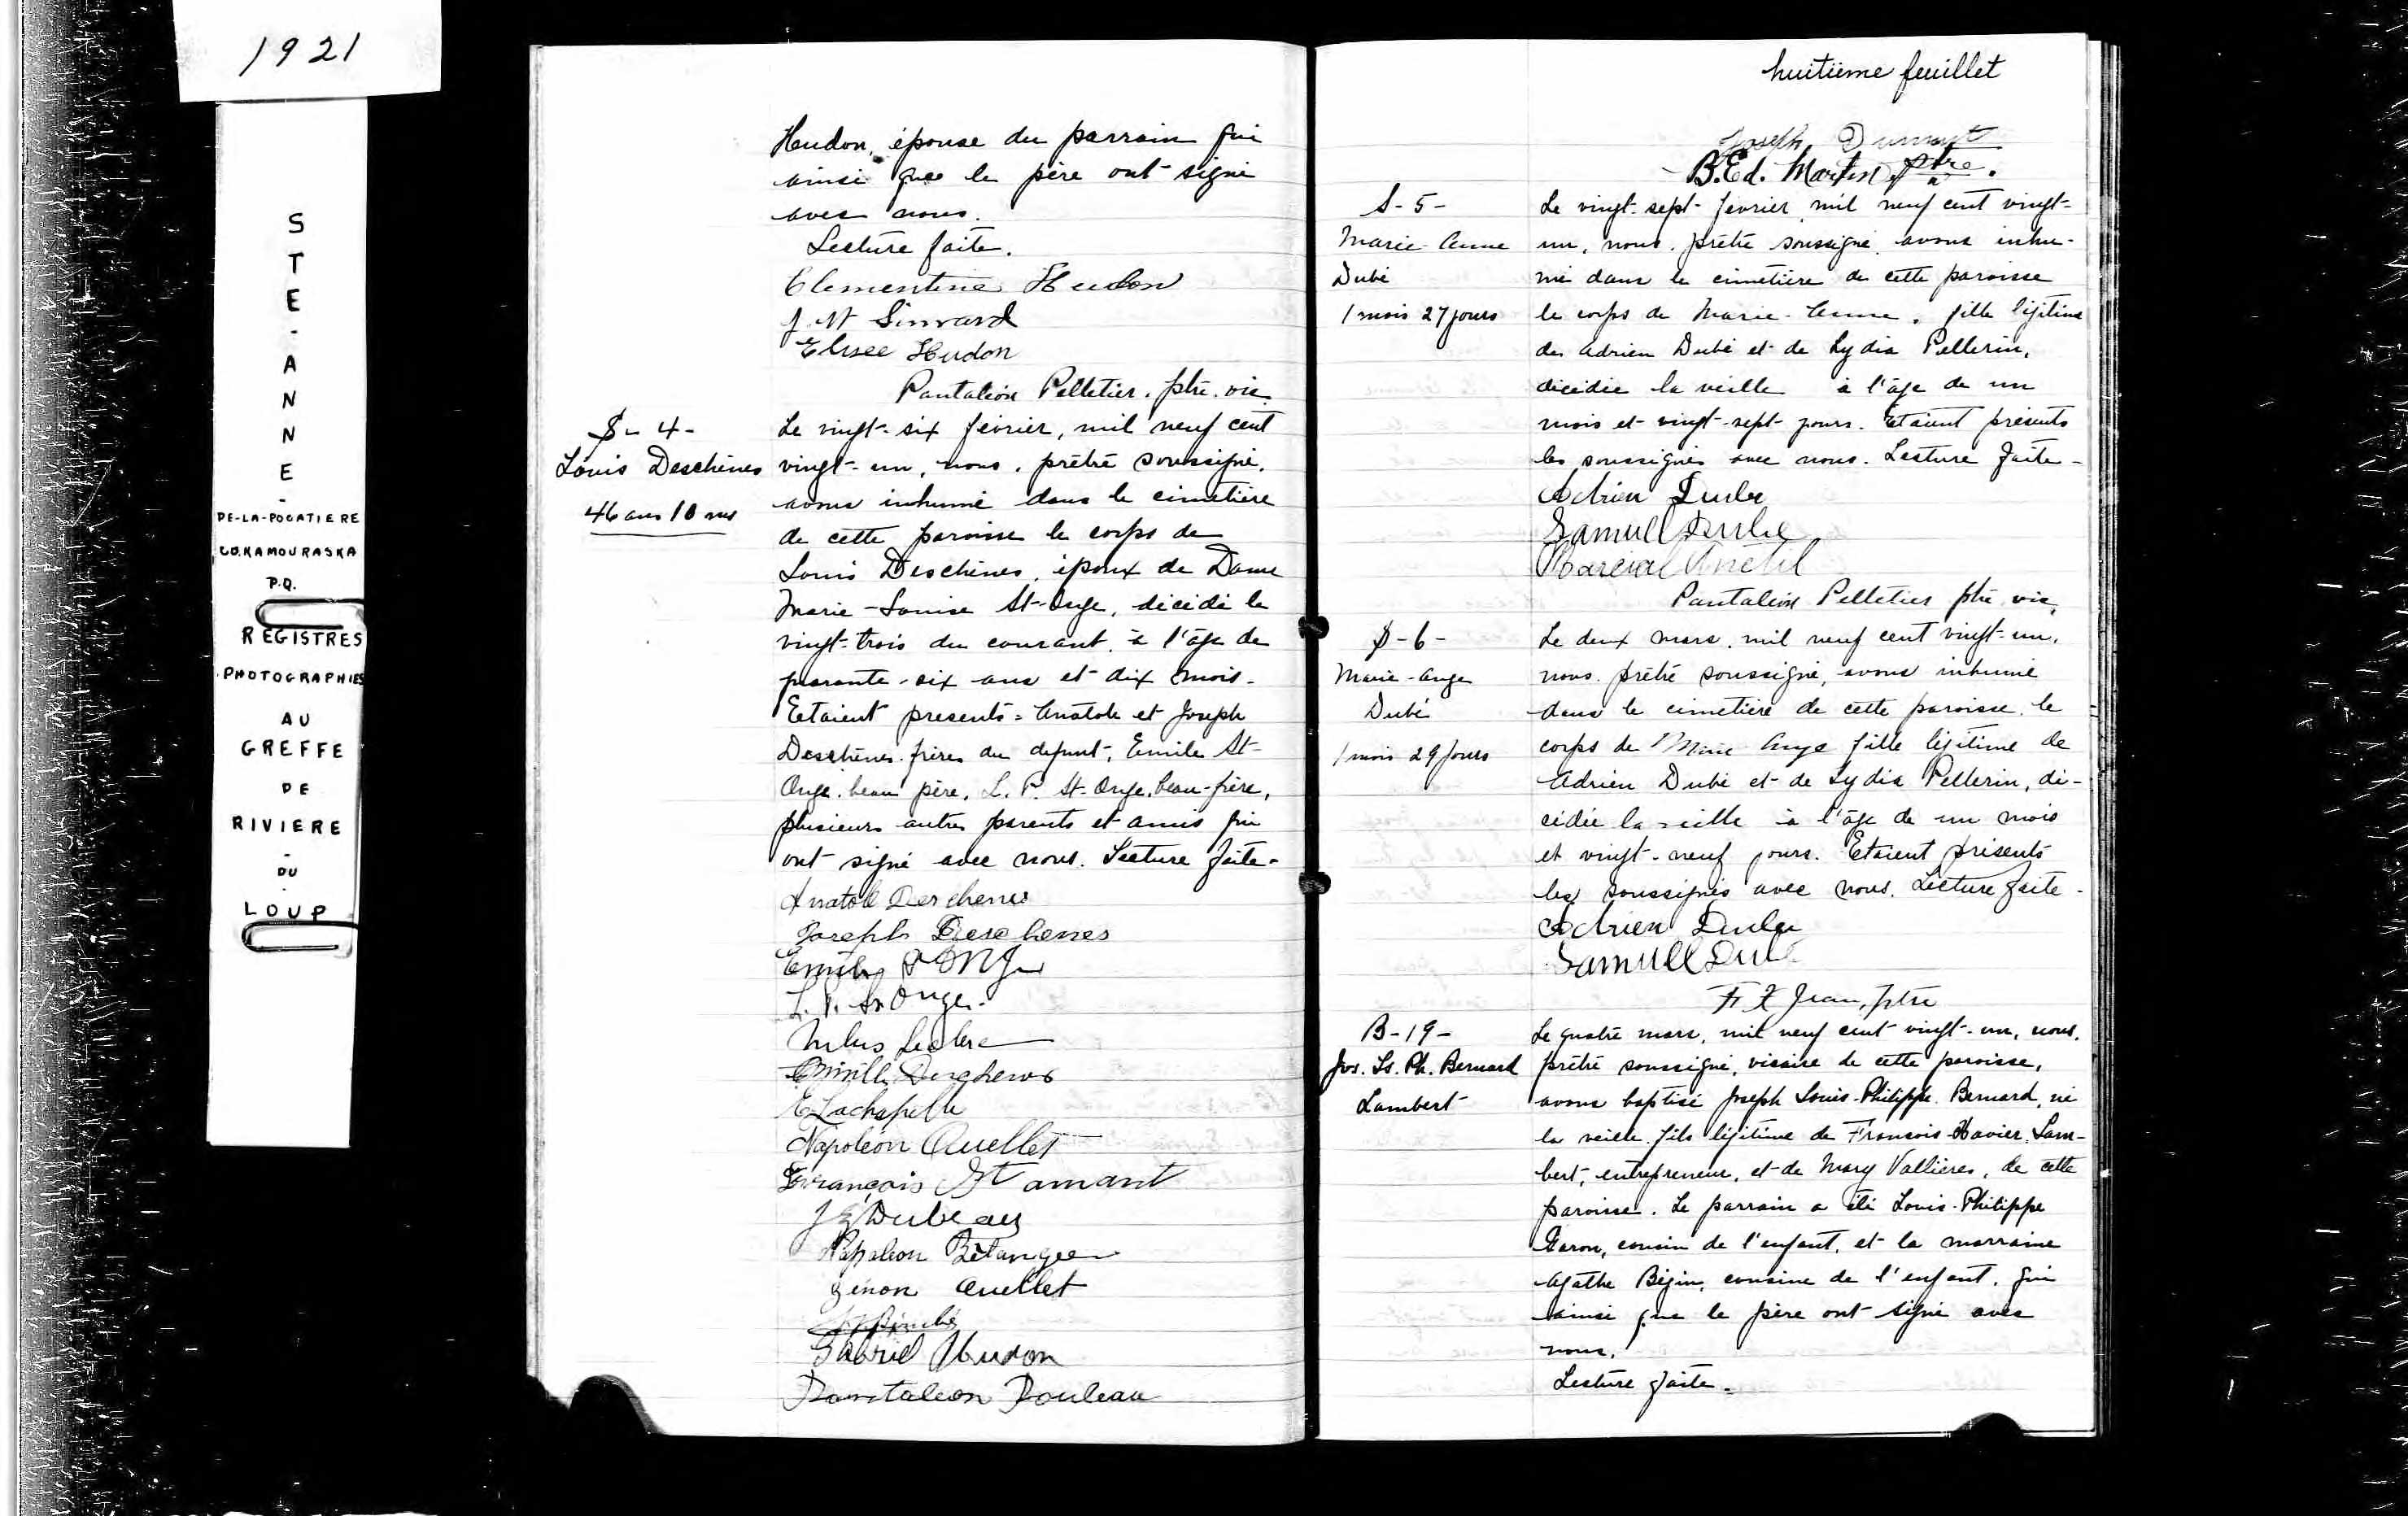 1921
STE-ANNE-
DE-LA-POCATIERE
CO. KAMOURASKA
P.Q.
REGISTRES
PHOTOGRAPHIES
AU
GREFFE
DE
RIVIERE
-
DU
LOUP
Hudon, épouse du parrain qui
ainsi que le père ont signé
avec nous.
Lecture faite.
Clementine Hudon
Simard
Elisee Hudon
Pantaléon Pelletier, ptre. vic.
S-4-
Louis Deschênes
46 ans 10 ms
Le vingt-six février, mil neuf cent
vingt-un, nous, prêtre soussigné,
avons inhumé dans le cimetière
de cette paroisse le corps de
Louis Deschênes, époux de Dame
Marie-Louise St-Onge, décédé le
vingt-trois du courant, à l'âge de
quarante-six ans et dix mois.
Etaient présents: Anatole et Joseph
Deschênes frères du défunt, Emile St-
Onge, beau père, L. P. St-Onge, beau-frère,
plusieurs autres parents et amis qui
ont signé avec nous. Lecture faite-
Anatole Deschenes
Joseph Deschenes
L. P. St Onge.
Leclerc
Deschenes
E Lachapelle
Napoléon Ouellet
François St amant
J E Dubeau
Napoleon Bélanger
Zénon Ouellet
Gabriel Hudon
Pantaleon Rouleau
huitième feuillet
Joseph Dumont
B. Ed. Martin ptre.
S-5-
Marie-Anne
Dubé
1 mois 27 jours
Le vingt-sept février, mil neuf cent vingt-
un, nous, prêtre soussigné, avons inhu-
mé dans le cimetière de cette paroisse
le corps de Marie-Anne, fille légitime
de Adrien Dubé et de Lydia Pellerin,
décédée la veille à l'âge de un
mois et vingt-sept jours. Etaient présents
les soussignés avec nous. Lecture faite-
Adrien Dube
Samuell Dube
Marcial Anctil
Pantaléon Pelletier ptre. vic.
S-6-
Marie-Ange
Dubé
1 mois 29 jours
Le deux mars, mil neuf cent vingt-un,
nous prêtre soussigné, avons inhumé
dans le cimetière de cette paroisse, le
corps de Marie Ange fille légitime de
Adrien Dubé et de Lydia Pellerin, dé-
cédée la veille à l'âge de un mois
et vingt-neuf jours. Etaient présents
les soussignés avec nous. Lecture faite-
Adrien Dube
Samuell Dubé
F X Jean, ptre
B-19-
Jos. Ls. Ph. Bernard
Lambert
Le quatre mars, mil neuf cent vingt-un, nous,
prêtre soussigné, vicaire de cette paroisse,
avons baptisé Joseph Louis-Philippe Bernard, né
la veille, fils légitime de François-Xavier Lam-
bert, entrepreneur, et de Mary Vallières, de cette
paroisse. Le parrain a été Louis-Philippe
Garon, cousin de l'enfant, et la marraine
Agathe Bégin, cousine de l'enfant, qui
ainsi que le père ont signé avec
nous.
Lecture faite.